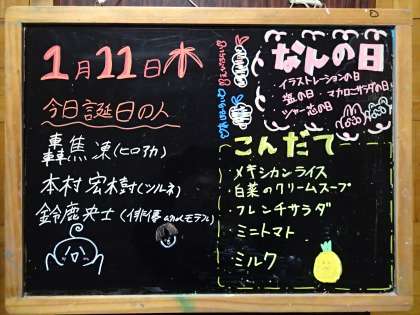 1月11日 木
今日誕日の人
轟 焦凍(ヒロアカ)
本村 宏樹(ツルネ)
鈴鹿央士(俳優 &モデル)
なんの日
・イラストレーションの日
・塩の日 ・マカロニサラダの日
・シャー芯の日
こんだて
・メキシカンライス
・白菜のクリームスープ
・フレンチサラダ
・ミニトマト
・ミルク